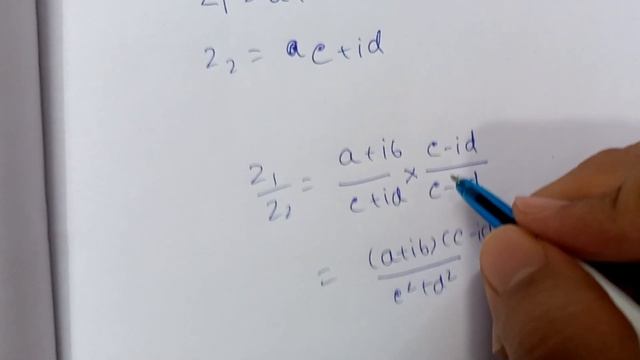 z₂ = c + id
z₁/z₂ = (a+ib)/(c+id) × (c-id)/(c-id)
= (a+ib)(c-id)/(c²+d²)